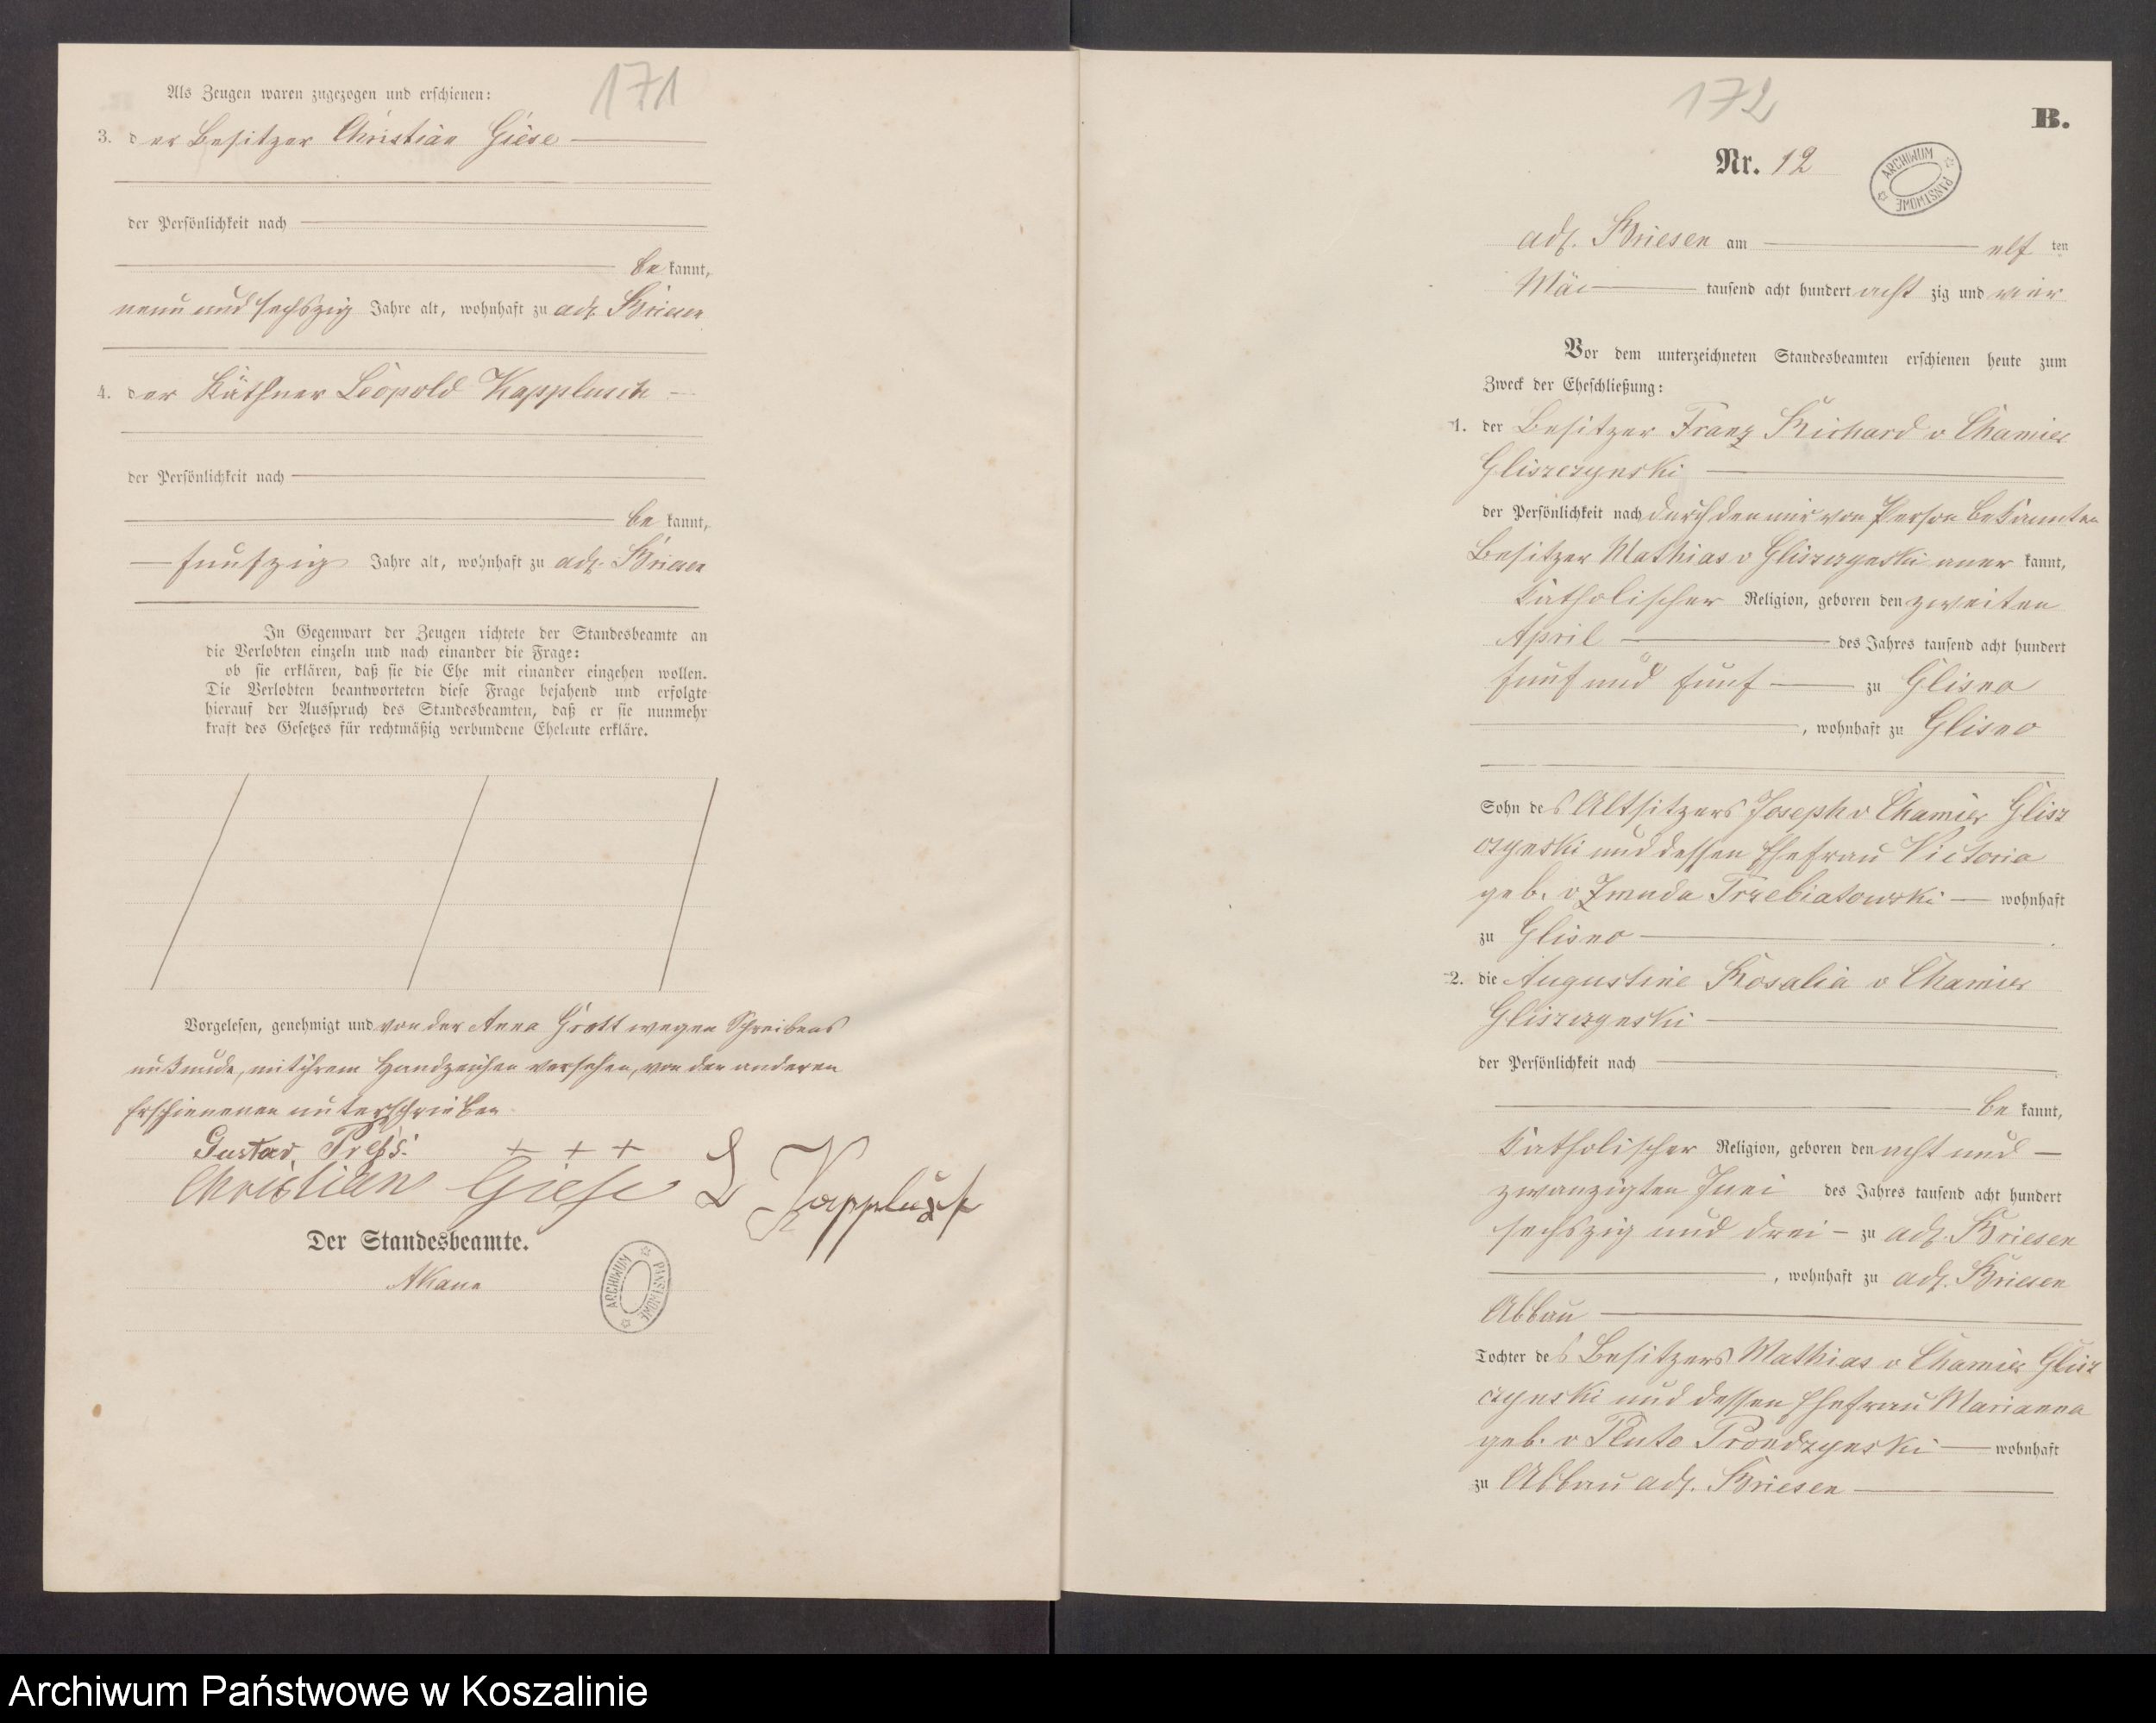 171
Als Zeugen waren zugezogen und erschienen:
3. der Besitzer Christian Giese
der Persönlichkeit nach
be kannt,
neun und sechszig Jahre alt, wohnhaft zu adl. Briesen
4. der Käthner Leopold Kapplusch
der Persönlichkeit nach
be kannt,
funfzig Jahre alt, wohnhaft zu adl. Briesen
In Gegenwart der Zeugen richtete der Standesbeamte an
die Verlobten einzeln und nach einander die Frage:
ob sie erklären, daß sie die Ehe mit einander eingehen wollen.
Die Verlobten beantworteten diese Frage bejahend und erfolgte
hierauf der Ausspruch des Standesbeamten, daß er sie nunmehr
kraft des Gesetzes für rechtmäßig verbundene Eheleute erkläre.
Vorgelesen, genehmigt und von der Anna Grott wegen Schreibens
unkunde, mit ihrem Handzeichen versehen, von den anderen
Erschienenen unterschrieben
Gustav + + +
Christian Giese L Kapplusch
Der Standesbeamte.
ARCHIWUM PAŃSTWOWE
172
B.
Nr. 12
ARCHIWUM PAŃSTWOWE
adl. Briesen am elf ten
Mai tausend acht hundert acht zig und vier
Vor dem unterzeichneten Standesbeamten erschienen heute zum
Zweck der Eheschließung:
1. der Besitzer Franz Richard v Chamier
Gliszczynski
der Persönlichkeit nach durch den mir von Person bekannten
Besitzer Mathias v Gliszczynski aner kannt,
katholischer Religion, geboren den zweiten
April des Jahres tausend acht hundert
funf und funf zu Glisno
, wohnhaft zu Glisno
Sohn des Altsitzers Joseph v Chamier Glisz
czynski und dessen Ehefrau Victoria
geb. v Zmuda Trzebiatowski wohnhaft
zu Glisno
2. die Augustine Rosalia v Chamier
Gliszczynski
der Persönlichkeit nach
be kannt,
katholischer Religion, geboren den acht und
zwanzigten Juni des Jahres tausend acht hundert
sechszig und drei zu adl. Briesen
, wohnhaft zu adl. Briesen
Abbau
Tochter des Besitzers Mathias v Chamier Glisz
czynski und dessen Ehefrau Marianna
geb. v Pluto Prondzynski wohnhaft
zu Abbau adl. Briesen
Archiwum Państwowe w Koszalinie